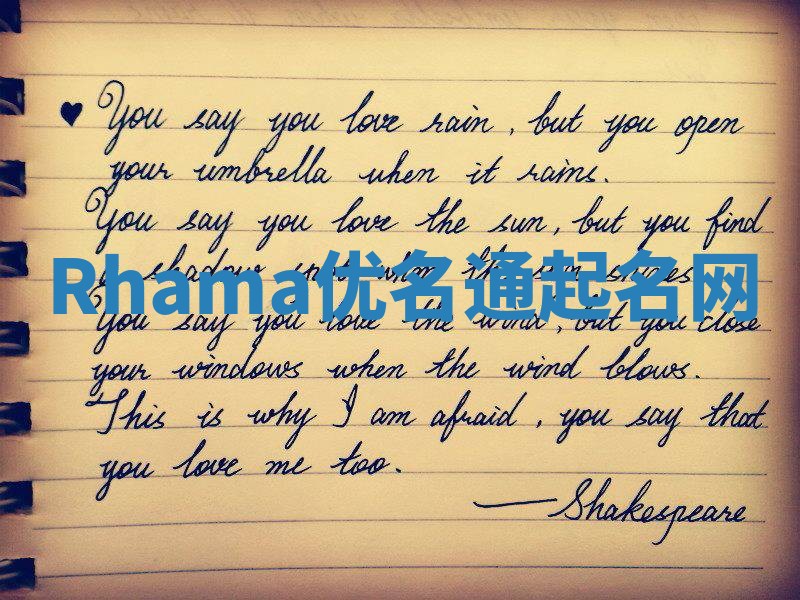 You say you love rain, but you open
your umbrella when it rains.
You say you love the sun, but you find
a shadow spot when the sun shines
Rhama优名通起名网
You say you love the wind, but you close
your windows when the wind blows.
This is why I am afraid, you say that
you love me too.
—Shakespeare